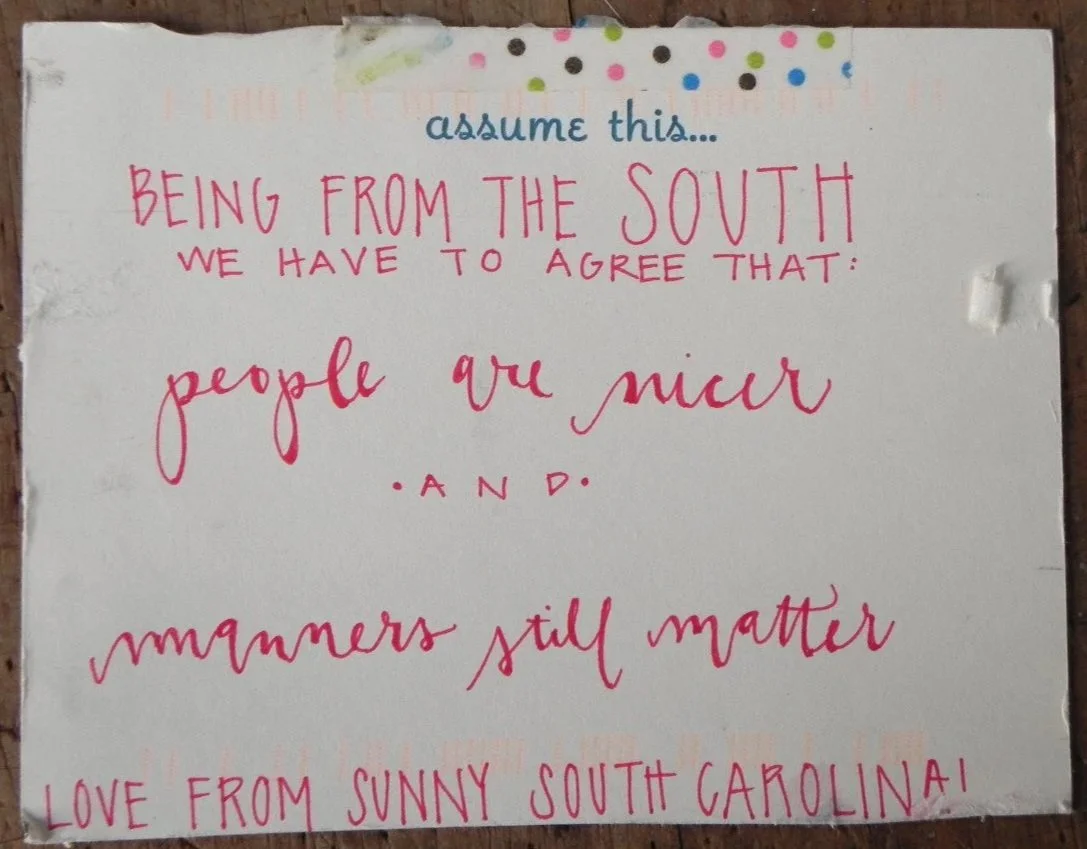 assume this...
BEING FROM THE SOUTH
WE HAVE TO AGREE THAT:
people are nicer
·AND·
manners still matter
LOVE FROM SUNNY SOUTH CAROLINA!